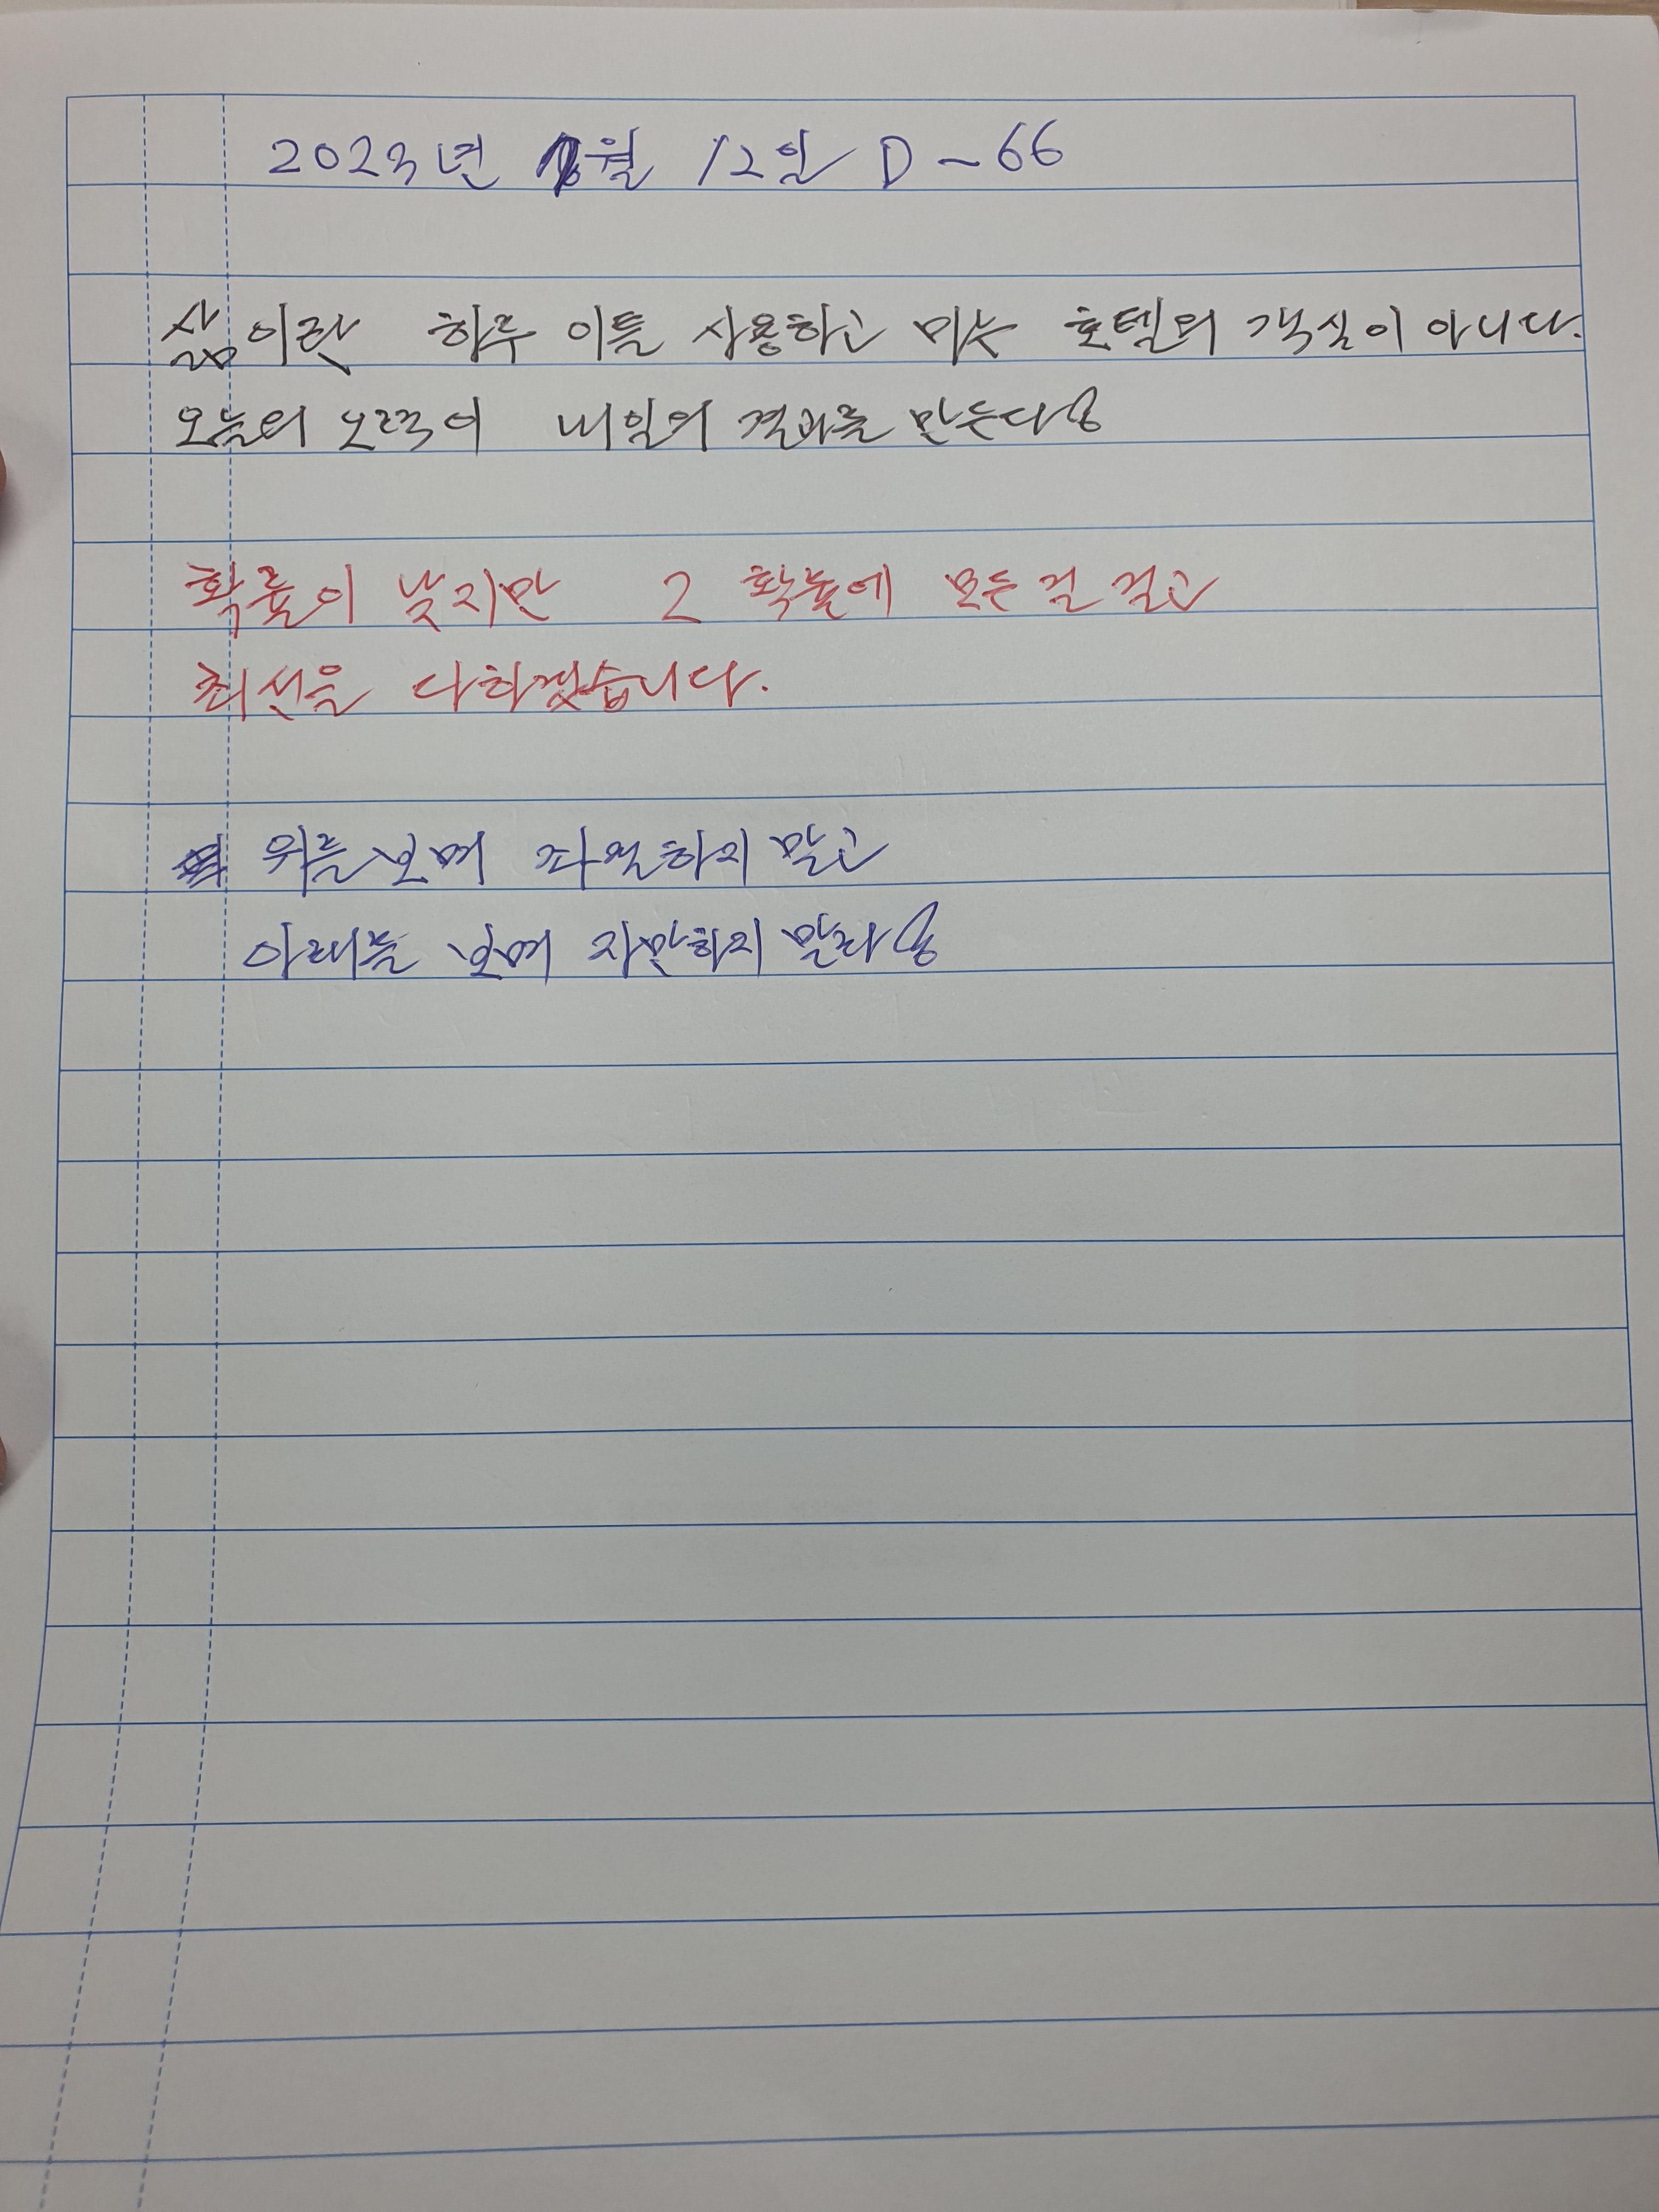 2023년 월 12일 D-66
삶이란 하루 이틀 사용하고 마는 호텔의 객실이 아니다.
오늘의 노력이 내일의 결과를 만든다
확률이 낮지만 그 확률에 모든걸 걸고
최선을 다하겠습니다.
위를 보며 좌절하지 말고
아래를 보며 자만하지 말라